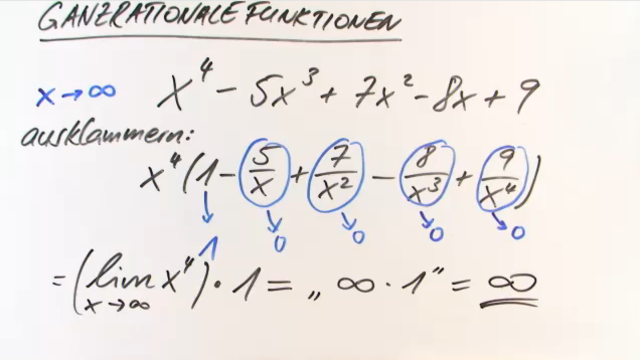 GANZRATIONALE FUNKTIONEN
x → ∞ x⁴ - 5x³ + 7x² - 8x + 9
ausklammern:
x⁴(1 - 5/x + 7/x² - 8/x³ + 9/x⁴)
1 0 0 0 0
= (lim x→∞ x⁴) · 1 = „ ∞ · 1 " = ∞